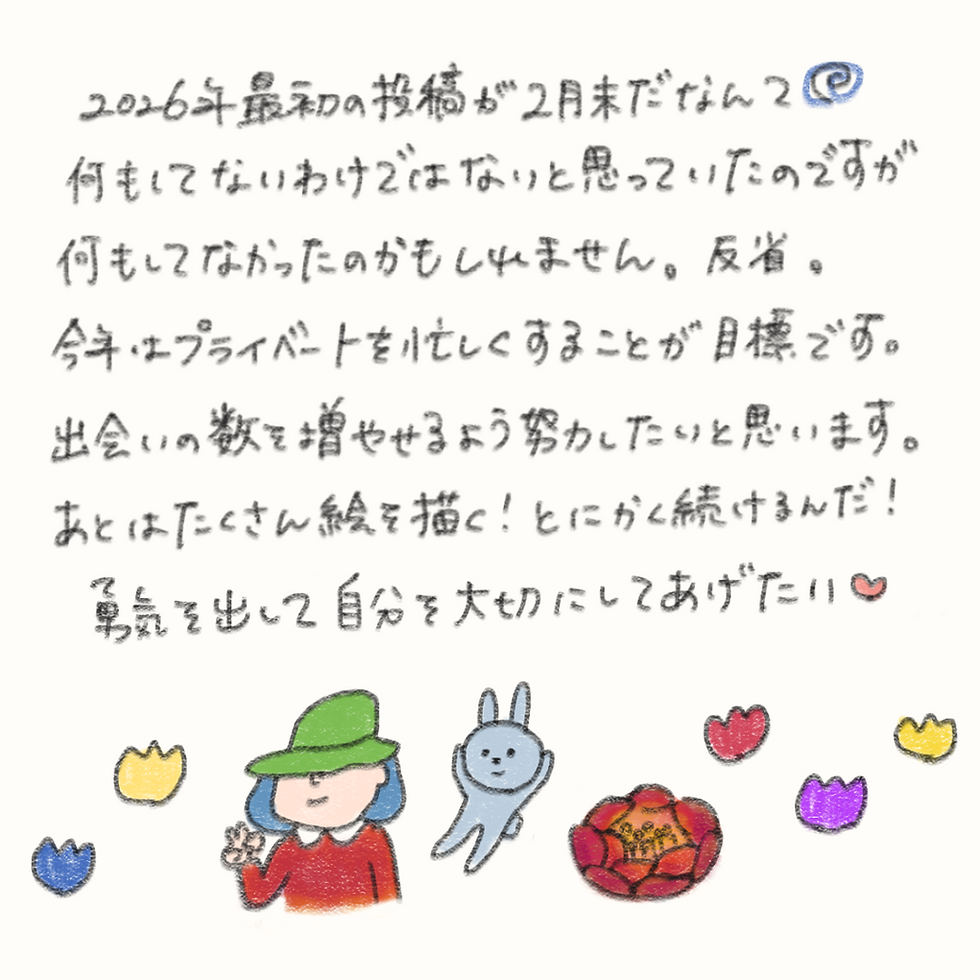 2026年最初の投稿が2月末だなんて
何もしてないわけではないと思っていたのですが
何もしてなかったのかもしれません。反省。
今年はプライベートを忙しくすることが目標です。
出会いの数を増やせるよう努力したいと思います。
あとはたくさん絵を描く！とにかく続けるんだ！
勇気を出して自分を大切にしてあげたい